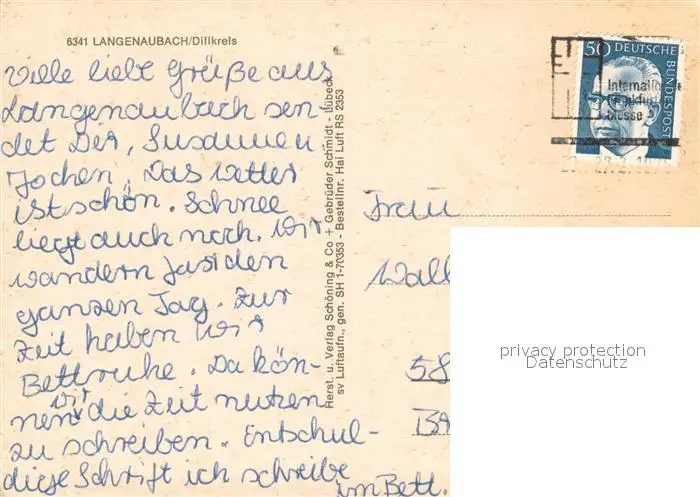 6341 LANGENAUBACH/Dillkreis
Viele liebe Grüße aus
Langenaubach sen-
det Der, Susannen
Jochen. Das wetter
ist schön. Schnee
liegt auch noch. Wir
wandern fast den
ganzen Tag. Zur
Zeit haben wir
Bettruhe. Da kön-
nen wir die Zeit nutzen
zu schreiben. Entschul-
dige Schrift ich schreibe
im Bett.
Herst. u. Verlag Schöning & Co + Gebrüder Schmidt - Lübeck
sv Luftaufn., gen. SH 1-70353 - Bestellnr. Hai Luft RS 2353
50 DEUTSCHE
BUNDESPOST
Internationale
Frankfurt
Messe
Frau
Wall
58
BA
privacy protection
Datenschutz